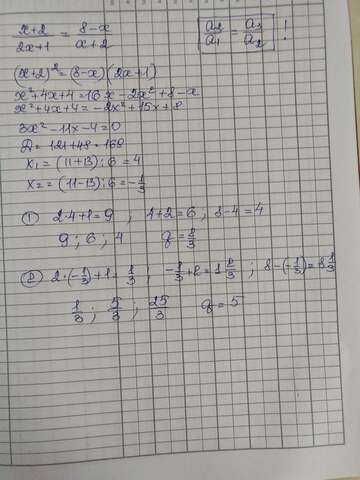 (x+2)/(2x+1) = (8-x)/(x+2)    a₂/a₁ = a₃/a₂ !
(x+2)² = (8-x)(2x+1)
x²+4x+4=16x-2x²+8-x
x²+4x+4=-2x²+15x+8
3x²-11x-4=0
D=121+48=169
x₁=(11+13):6=4
x₂=(11-13):6=-1/3
① 2·4+1=9 , 4+2=6 ; 8-4=4
9 ; 6 ; 4    q=2/3
② 2·(-1/3)+1=1/3 ; -1/3+2=1 2/3 ; 8-(-1/3)=8 1/3
1/3 ; 5/3 ; 25/3    q=5